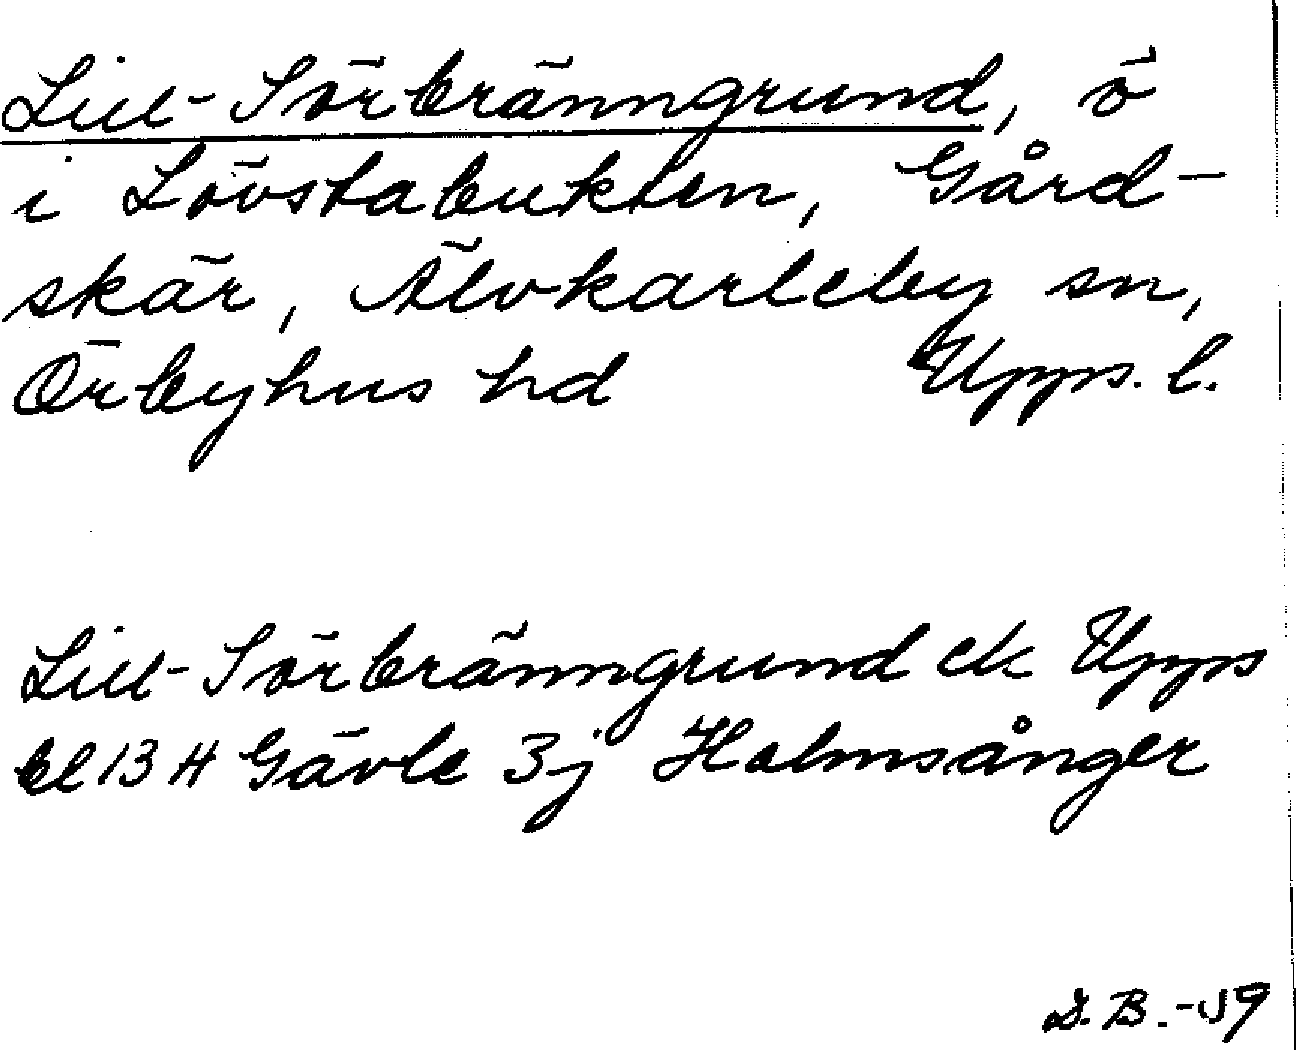 Lill-Sörbränngrund, ö
i Lövstabukten, Gård-
skär, Älvkarleby sn,
Örbyhus hd Upps. l.
Lill-Sörbränngrund ek Upps
bl 13 H Gävle 3j Holmsånger
D.B.